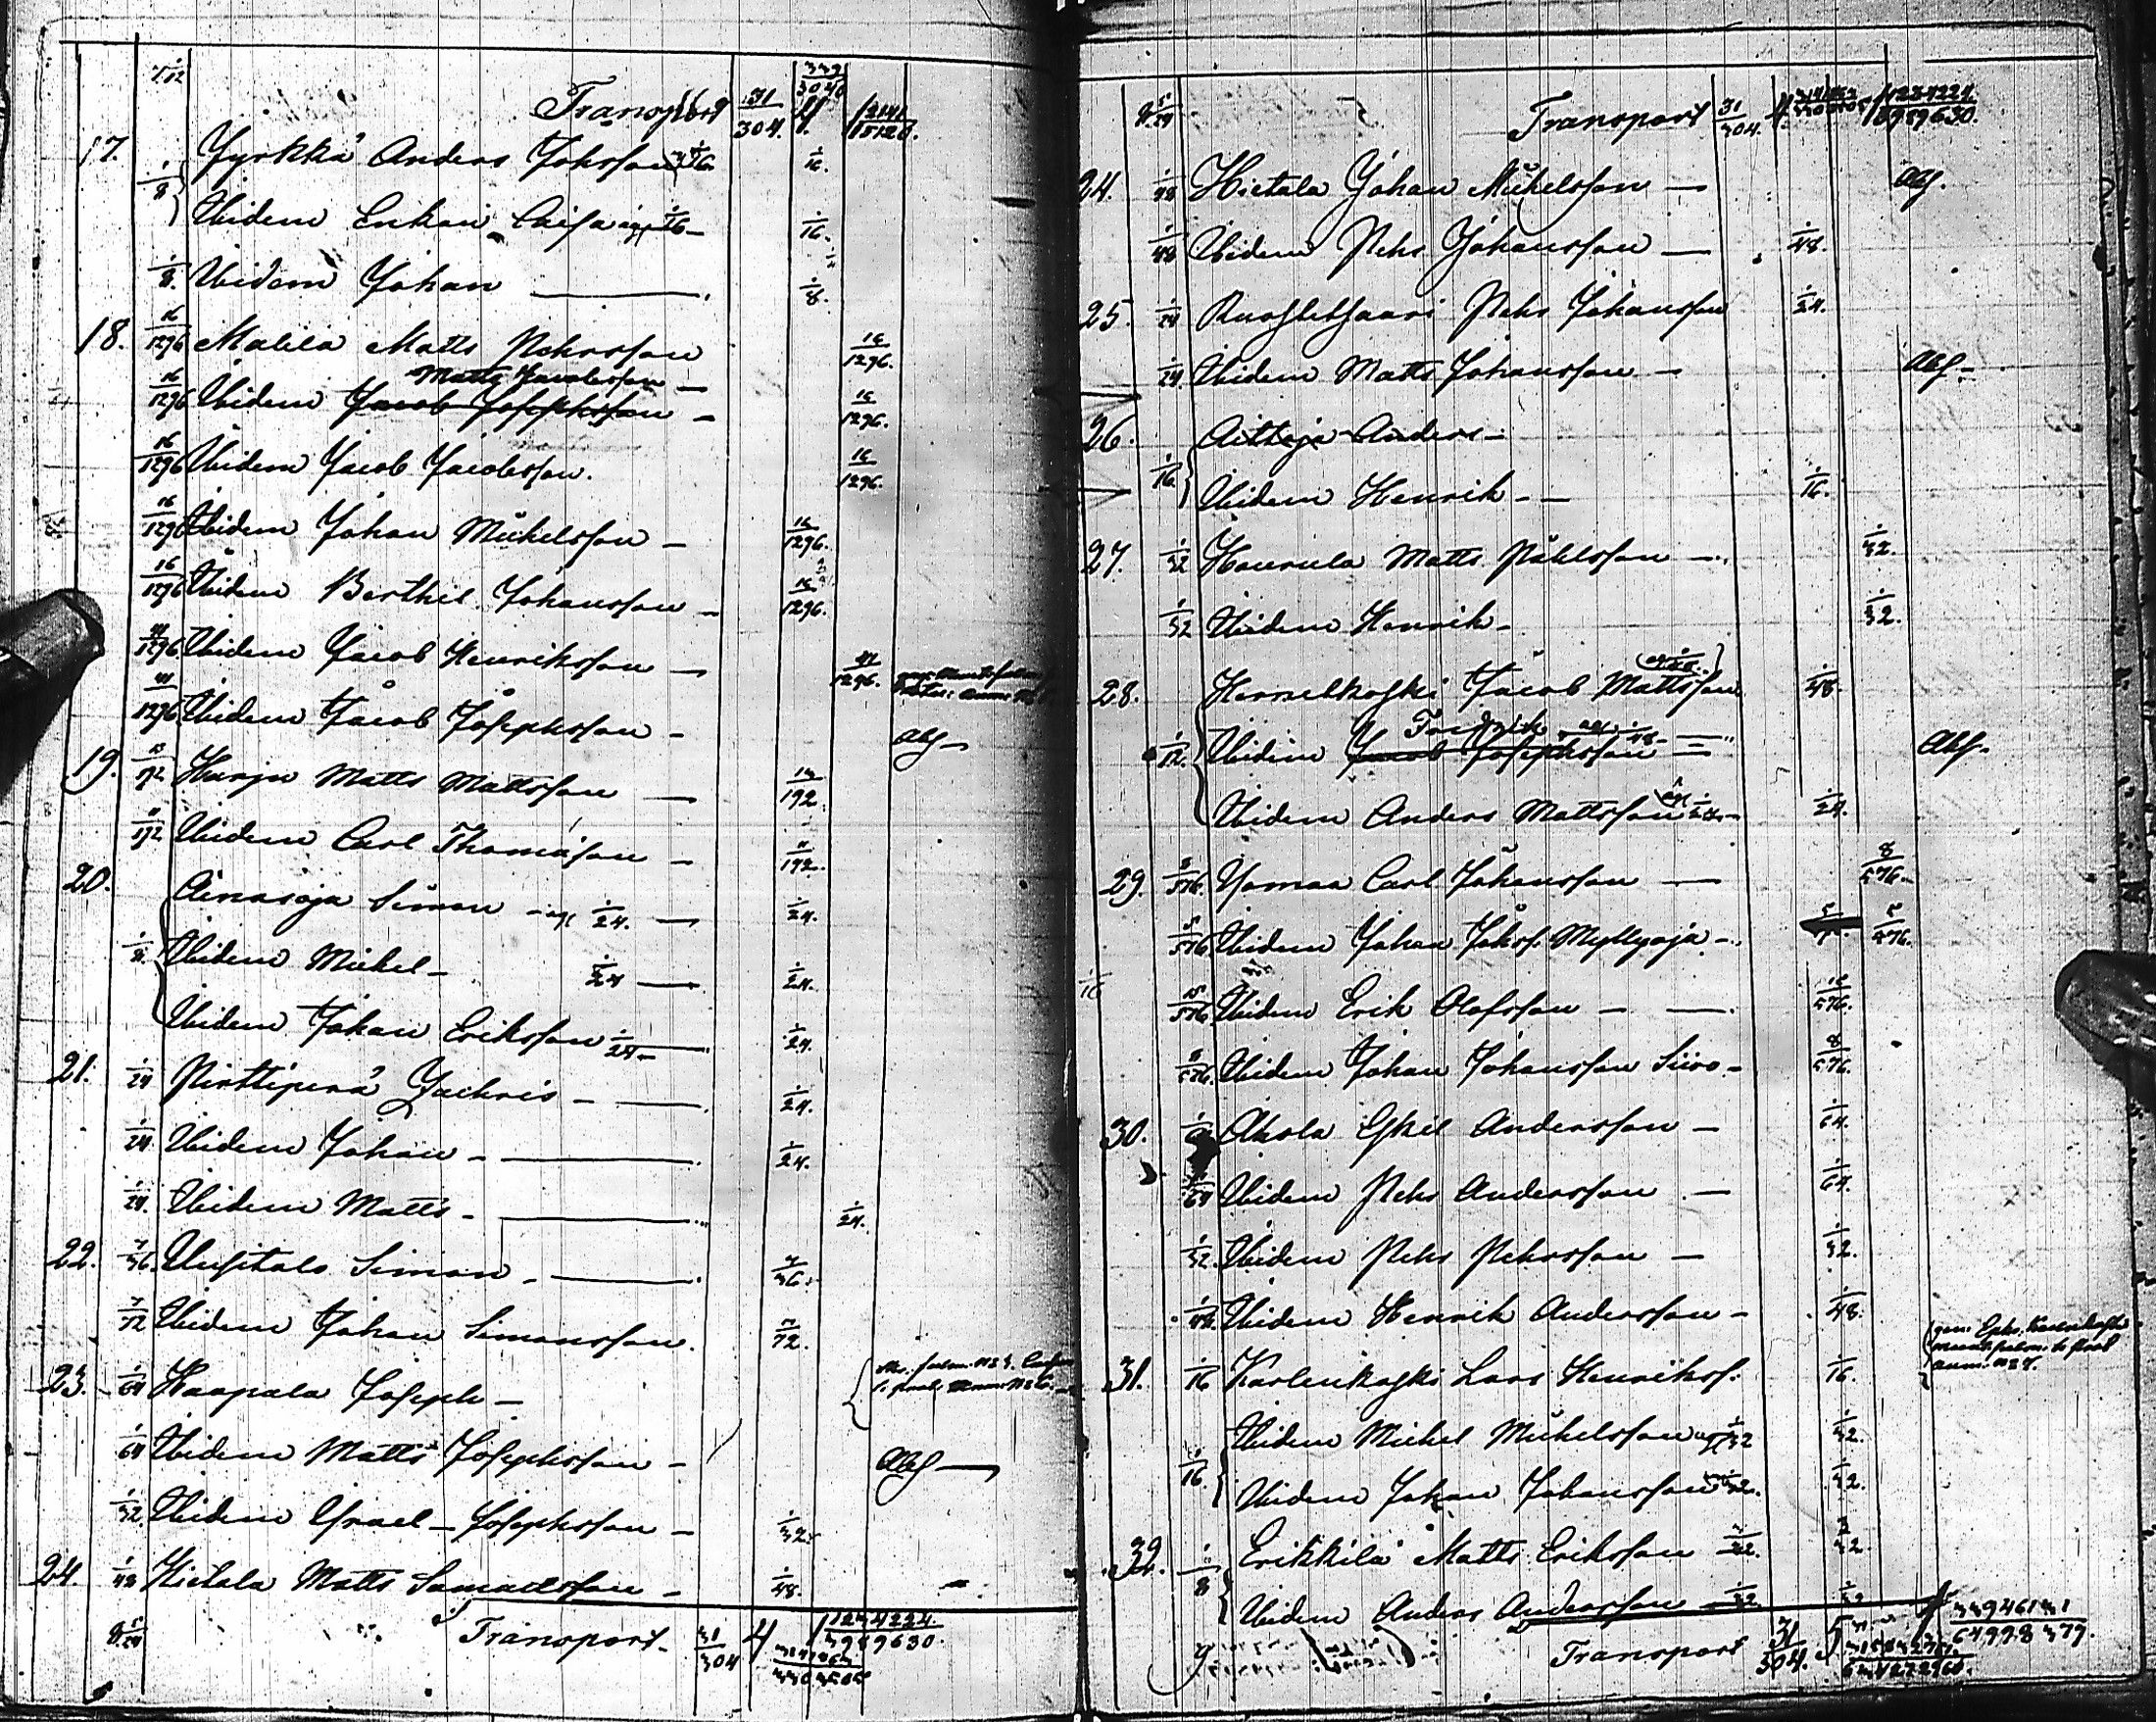 Transport 31/304. 4 339/3040 1 2141/15120.
17. 1/8 Jyrkkä Anders Johsson 1/16 1/16.
Ibidem Enkan Caisa äger 1/16 - 1/16.
1/8. Ibidem Johan - 1/8.
18. 16/1296 Malila Matts Pehrsson 16/1296.
Matts Jacobsson -
16/1296 Ibidem Jacob Josephsson - 16/1296.
16/1296 Ibidem Jacob Jacobsson. 16/1296.
16/1296 Ibidem Johan Michelsson - 16/1296.
16/1296 Ibidem Berthil Johansson - 16/1296.
41/1296. Ibidem Jacob Henriksson - 41/1296.
41/1296 Ibidem Jacob Josephsson - Abs -
19. 13/192 Harju Matts Mattsson -
11/192 Ibidem Carl Thomasson - 11/192.
20. Ainasoja Simon - äg 1/24. - 1/24.
1/8. Ibidem Michel - 1/24 - 1/24.
Ibidem Johan Eriksson 1/24 - 1/24.
21. 1/24 Pirttiperä Zachris - 1/24.
1/24. Ibidem Johan - 1/24.
1/24. Ibidem Matts - 1/24.
22. 7/36. Uusitalo Simon - 7/36.
7/72 Ibidem Johan Simonsson. 7/72.
23. 1/64 Haapala Joseph -
1/64 Ibidem Matts Josephsson - Abs -
1/32. Ibidem Israel - Josephsson - 1/32.
24. 1/48 Hietala Matts Samuelsson - 1/48.
8 5/24 Transport - 31/304 4 1 1234224./3959630.
8 5/24 Transport 31/304. 4 1 1234224./3959630.
24. 1/48 Hietala Johan Michelsson - Abs.
1/48 Ibidem Pehr Johansson - 1/48.
25. 1/24 Ruohlehsaari Pehr Johansson 1/24.
1/24. Ibidem Matts Johansson - Abs -
26. Aittoja Anders -
1/16. Ibidem Henrik - - 1/16.
27. 1/32 Haurula Matts Påhlsson - 1/32.
1/32 Ibidem Henrik - 1/32.
28. Hernelkoski Jacob Mattsson 1/48.
1/12. Ibidem Jacob Josephsson - Abs -
Ibidem Anders Mattsson äg 1/24 - 1/24.
29. 8/576. Yömaa Carl Johansson - 8/576.
5/576 Ibidem Johan Johss. Myllyoja - 5/576.
15/576. Ibidem Erik Olofsson -
8/576. Ibidem Johan Johansson Siiro - 8/576.
30. Akola Eskil Andersson - 1/64.
1/64 Ibidem Pehr Andersson - 1/64.
1/32. Ibidem Pehr Pehrsson - 1/32.
1/48. Ibidem Henrik Andersson - 1/48.
31. 1/16 Karlenkaski Lars Henrikss. 1/16.
Ibidem Michel Michelsson äg 1/32 1/32.
1/16. Ibidem Johan Johansson 1/32. 1/32.
32. 1/8 Erikkilä Matts Eriksson
Ibidem Anders Andersson
9 Transport 31/304. 5